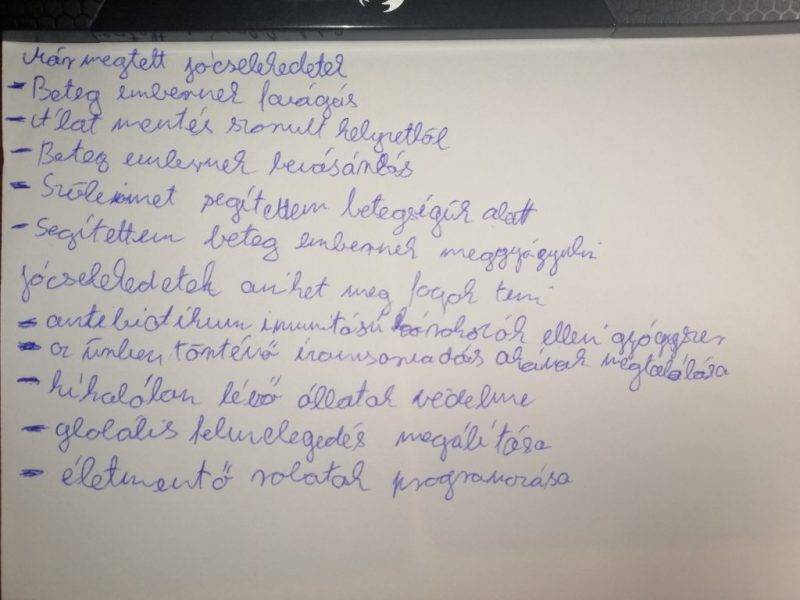 Már megtett jócselekedetek
- Beteg embernek favágás
- Álat mentés szorult helyzetből
- Beteg embernek bevásárlás
- Szüleimet segítettem betegségük alatt
- Segítettem beteg embernek meggyógyulni
jócselekedetek amiket meg fogok teni
- antibiotikum imunitású kórokozók elleni gyógyszer
- az űrben történő megtalálása
- kihalóban lévő állatok védelme
- globális felmelegedés megálítása
- életmentő robotok programozása